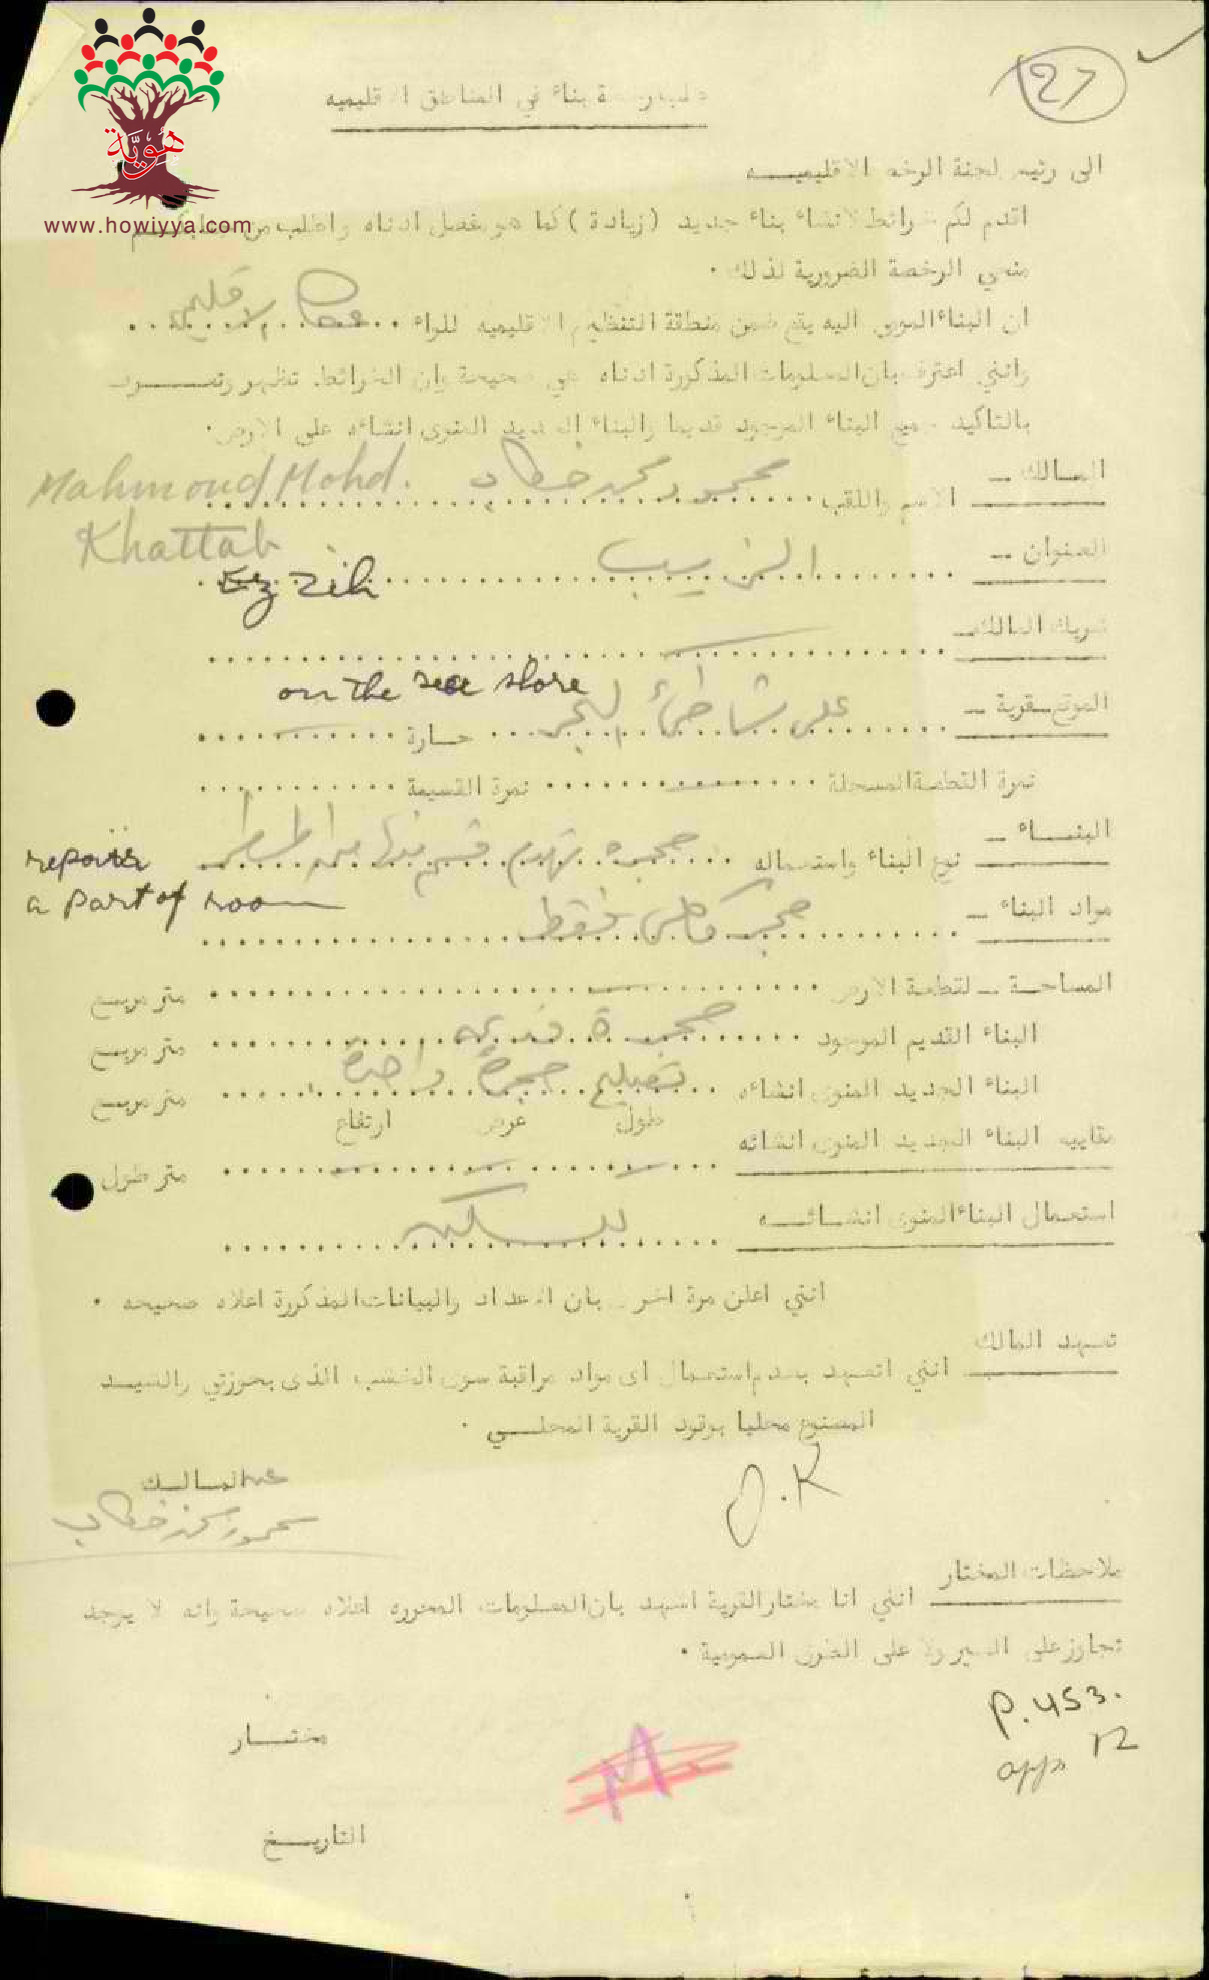 هُوِيَّة
www.howiyya.com
27
بناء في المناطق الاقليميه
الى رئيس لجنة الرخص الاقليميـــه
اقدم لكم خرائط لانشاء بناء جديد (زيادة) كما هو مفصل ادناه واطلب من
منحي الرخصة الضرورية لذلك .
ان البناء المومى اليه يقع ضمن منطقة التنظيم الاقليميه للواء
وانني اعترف بان المعلومات المذكورة ادناه هي صحيحة وان الخرائط تظهر
بالتاكيد جميع البناء الموجود قديما والبناء الجديد المنوى انشاءه على الارض .
المـالك ـ
الاسم واللقب محمود محمد خطاب
Mahmoud Mohd.
Khattab
العنوان ـ الزيب
Ez Zib
شريك المالك ـ
on the sea shore
الموقع ـ قرية ـ على شاطئ البحر حـارة
نمرة القطعة المسجلة نمرة القسيمة
البنـــاء ـ
نوع البناء واستعماله حجره تهدم قسم منها
repair
a part of room
مواد البناء ـ حجر فقط
المساحـة ـ لقطعة الارض متر مربع
البناء القديم الموجود حجرة متر مربع
البناء الجديد المنوى انشاءه تصليح حجرة واحدة متر مربع
طول عرض ارتفاع
مقاييس البناء الجديد المنوى انشائه متر طول
استعمال البناء المنوى انشـائـــه
انني اعلن مرة اخرى بان الاعداد والبيانات المذكورة اعلاه صحيحه .
تعهد المالك
انني اتعهد بعدم استعمال اى مواد مراقبة سوى الخشب الذى بحوزتي والشيـد
المصنوع محليا بوقود القرية المحلـــي .
المـالـك
محمود محمد خطاب
O.K
ملاحظات المختار
انني انا مختار القرية اشهد بان المعلومات المحرره اعلاه صحيحة وانه لا يوجد
تجاوز على الغير ولا على الطرق العمومية .
P. 453.
app 12
مختــار
التاريـــخ